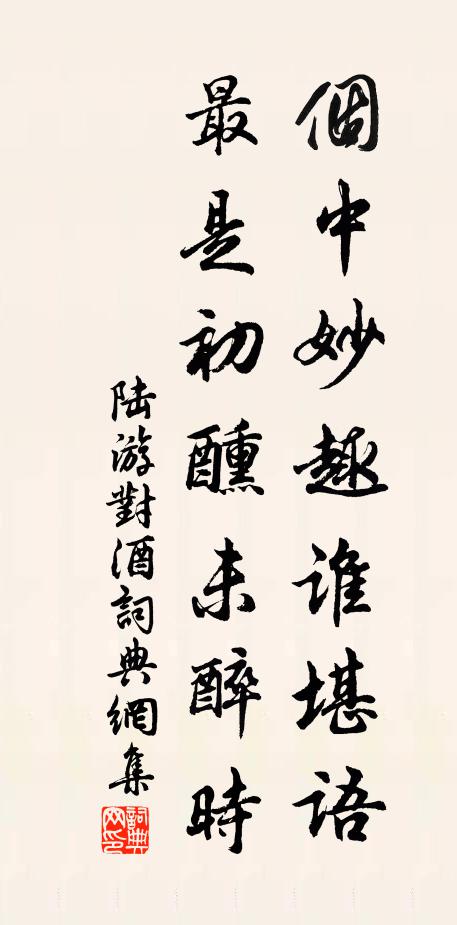 個中妙趣誰堪語
最是初醺未醉時
陆游對酒詞典網集
詞典網印